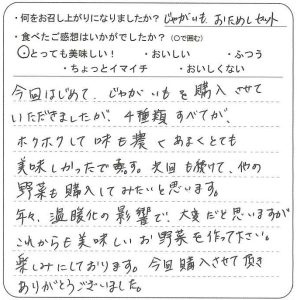 ・何をお召し上がりになりましたか？じゃがいも おためしセット
・食べたご感想はいかがでしたか？（○で囲む）
・とっても美味しい！ ・おいしい ・ふつう
・ちょっとイマイチ ・おいしくない
今回はじめて、じゃがいもを購入させて
いただきましたが、4種類すべてが、
ホクホクして味も濃くあまくとても
美味しかったです。次回も続けて、他の
野菜も購入してみたいと思います。
年々、温暖化の影響で、大変だと思いますが
これからも美味しいお野菜を作って下さい。
楽しみにしております。今回購入させて頂き
ありがとうございました。